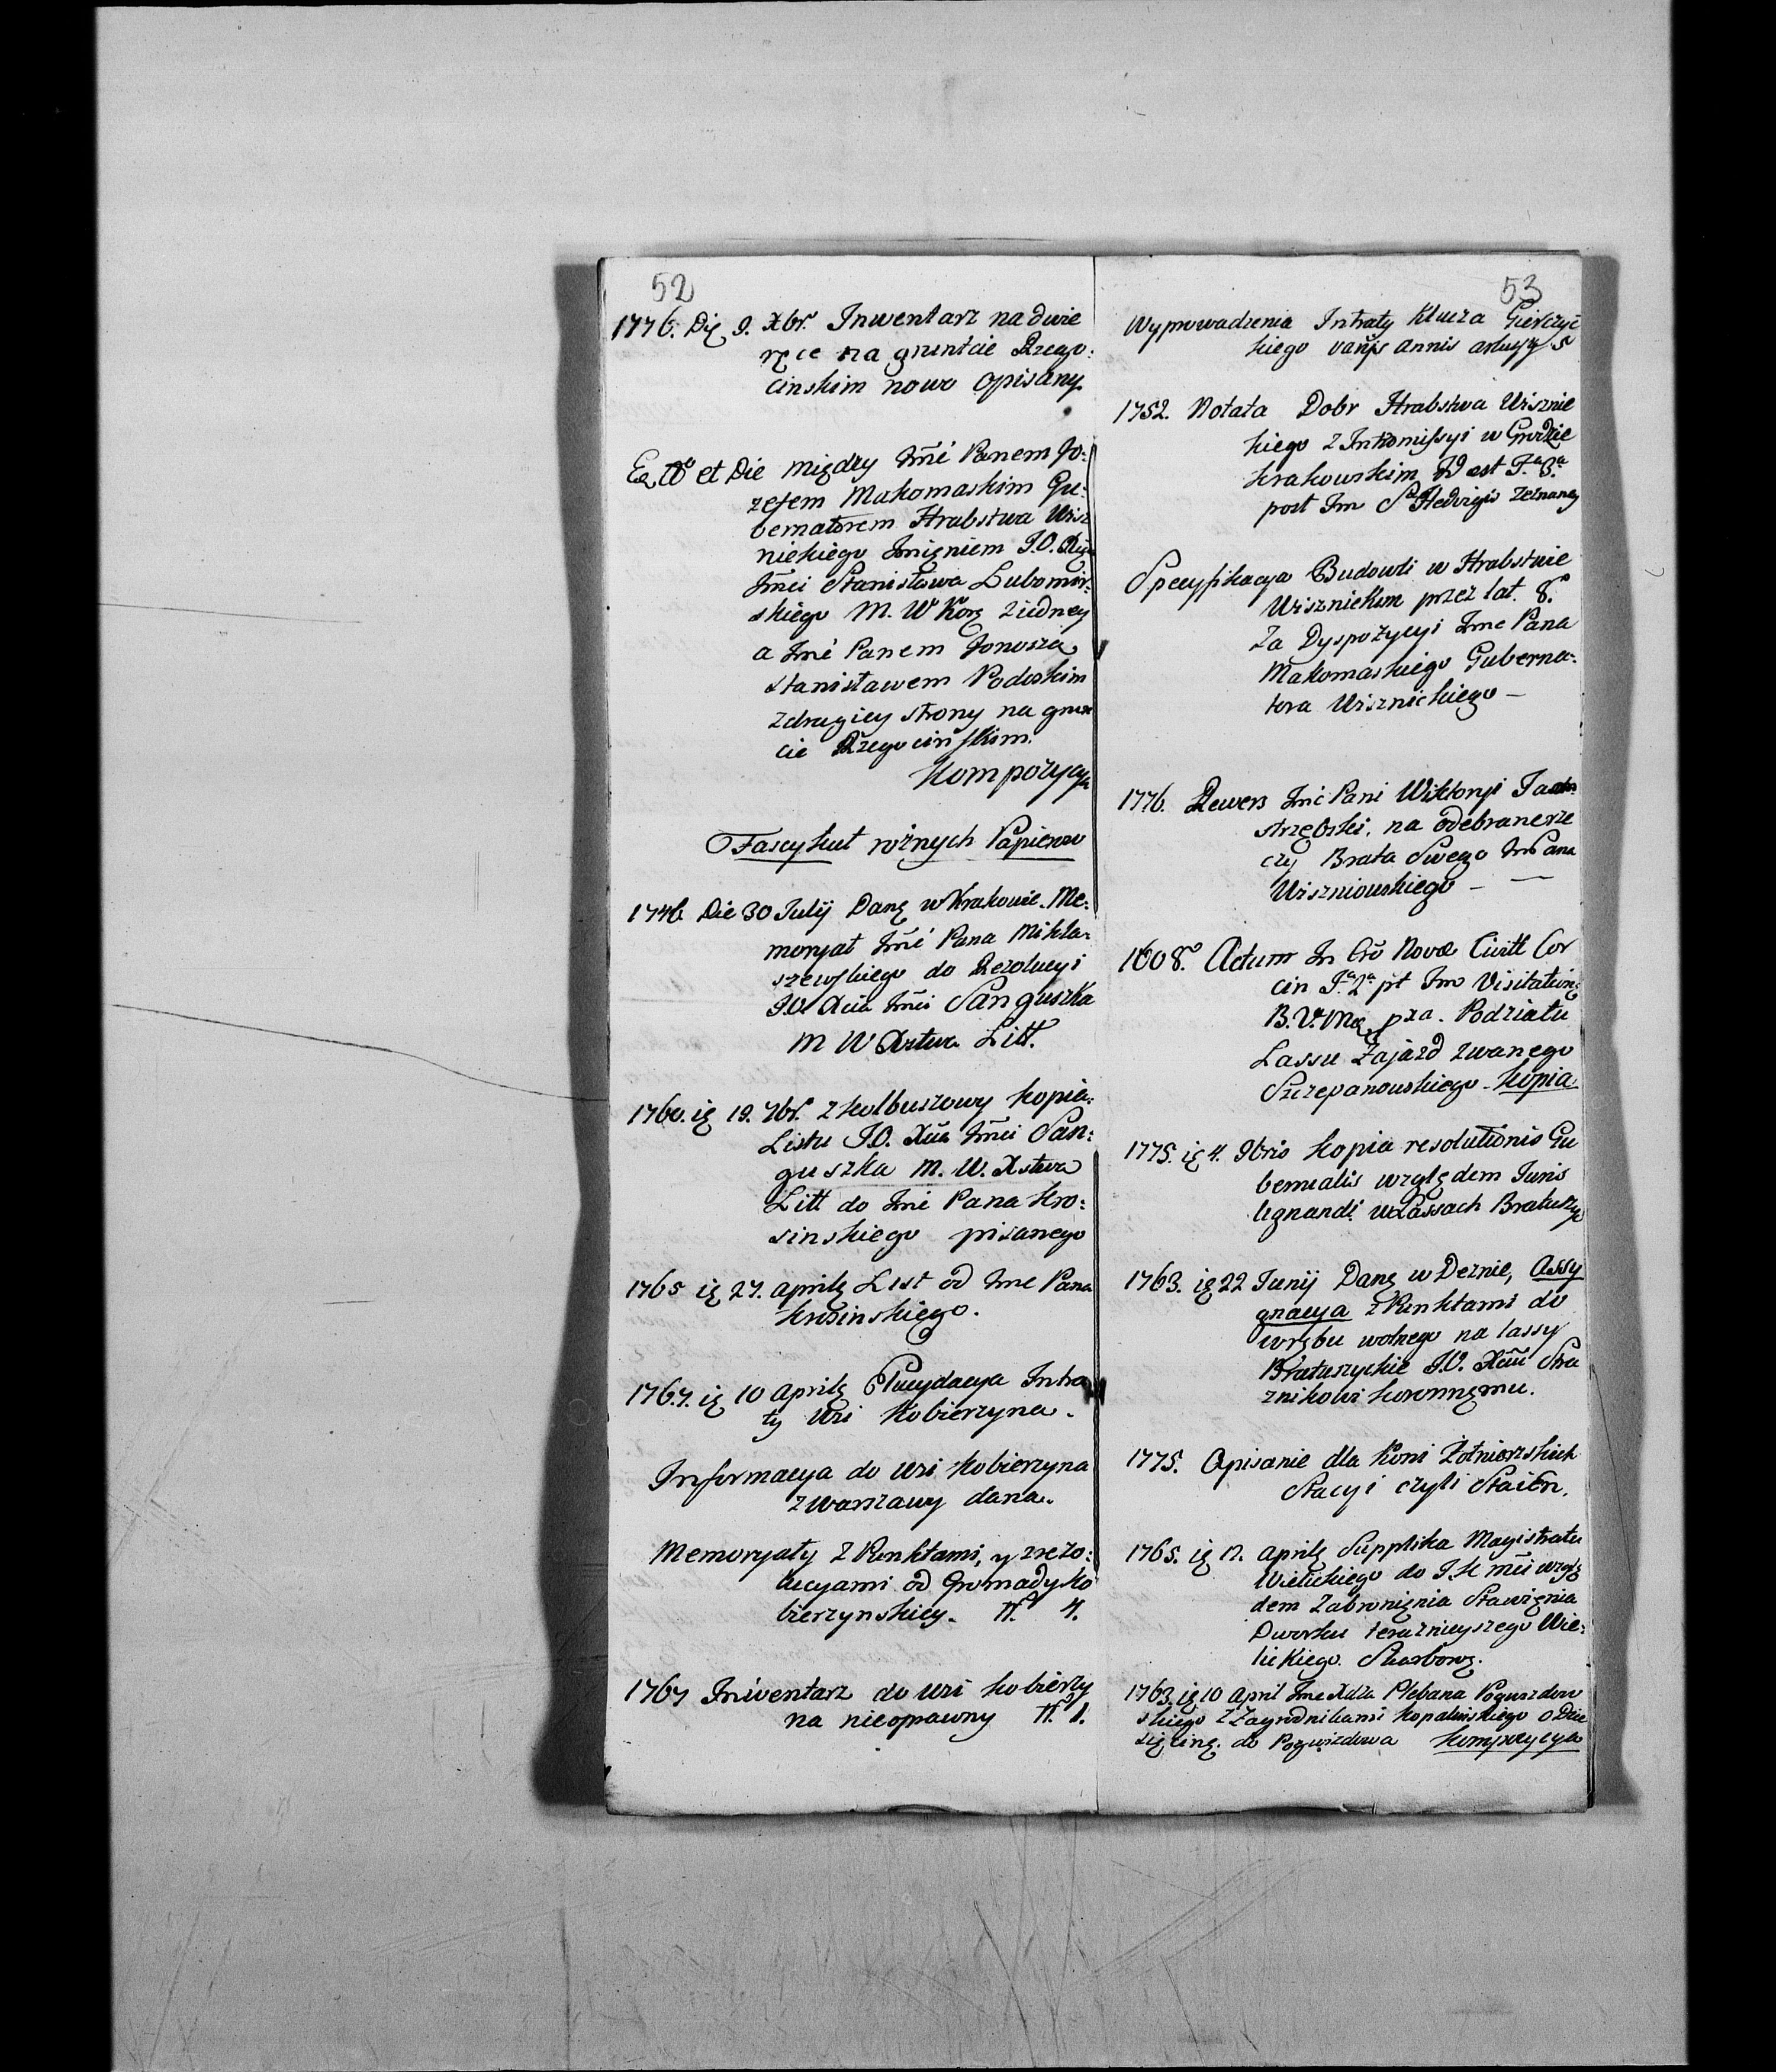 52
1776. Dię 9. Xbr. Inwentarz na dwie
ręce na gruntcie Rzego:
cinskim nowo opisany
Eo et Die między Jmć Panem Jo:
zefem Makomaskim Gu:
bernatorem Hrabstwa Wisz
nickiego Imięniem J.O. Xię
Jmci Stanisława Lubomir:
skiego M. W Korę ziedney
a Jmć Panem Jonosza
Stanisławem Podoskim
zdrugiey strony na grun
cie Rzegocinskim.
Kompozycya
Fascykuł rożnych Papierow
1746 Die 30 Julij Danę w Krakowie. Me:
moryał Jmć Pana Mikła:
szewskiego do Rezolucyi
J.O. Xcia Jmci Sanguszka
M W Xstwa Litt.
1760. ię 19. 7br. z Kolbuszowy Kopia:
Listu J.O. Xcia Jmci San:
guszka M. W. Xstwa
Litt do Jmć Pana Kro:
sinskiego pisanego
1765 ię 27. aprilę List od Jmc Pana
Krosinskiego.
1767. ię 10 aprilę Elucydacya Intra
ty Wsi Kobierzyna.
Informacya do Wsi Kobierzyna
z Warszawy dana.
Memoryały z Punktami, y zrezo:
lucyami od Gromady Ko
bierzynskiey. N. 4.
1767 Inwentarz do Wsi Kobierzy
na nieoprawny N. 1.
53
Wyprowadzenia Intraty Klucza Gierczyc
kiego varijs annis arkuszy 5
1752. Notata Dobr Hrabstwa Wisznic
kiego z Intromissyi w Grodzie
Krakowskim F. 3.
post Fm S Hedvigis zeznaney
Specyfikacya Budowli w Hrabstwie
Wisznickim przez lat. 8.
za Dyspozycyi Jmc Pana
Makomaskiego Guberna:
tora Wisznickiego —
1776. Rewers Jmć Pani Wiktoryi Ja
strzębski, na odebranerze
czy Brata Swego Pana
Wiszniowskiego — —
1608. Actum In Novæ Civitt Cor
cin F. 2 pt Fm Visitation
B. V. Mæ pra. Podziału
Lassu Zajazd zwanego
Szczepanowskiego - Kopia
1775. ię 4. 9bris Kopia resolutionis Gu
bernialis względem Juris
lignandi w Lassach Bratuszyc
1763. ię 22 Junij Danę w Deznie, Assy
gnacya z Punktami do
wrębu wolnego na lassy
Bratuszyckie J.O. Xciu Stra
znikowi Koronnęmu.
1775. Opisanie dla Koni Żołnierskich
Stacyi czyli Staien.
1765. ię 17. aprilę Supplika Magistratu
Wielickiego do J.K mci wzglę
dem Zabronięnia Stawięnia
Dworku terazniejszego Wie:
lickiego. Skarbowę.
1763. ię 10 April Jmc Xdza Plebana Pogwizdow
skiego z Zagrodnikami Kopalinskiego o Dzie
sięcinę. do Pogwizdowa Kompozycya